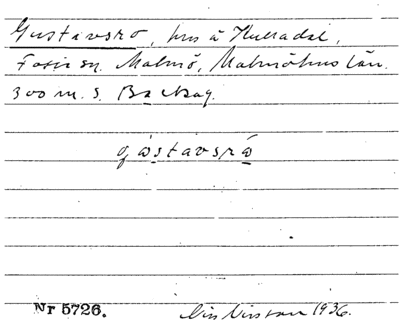 Gustavsro, hus å Kulladal,
Fosie sn. Malmö, Malmöhus län.
300 m. S. Backag.
gɷstavsrɷ́
Nr 5726.
1936.